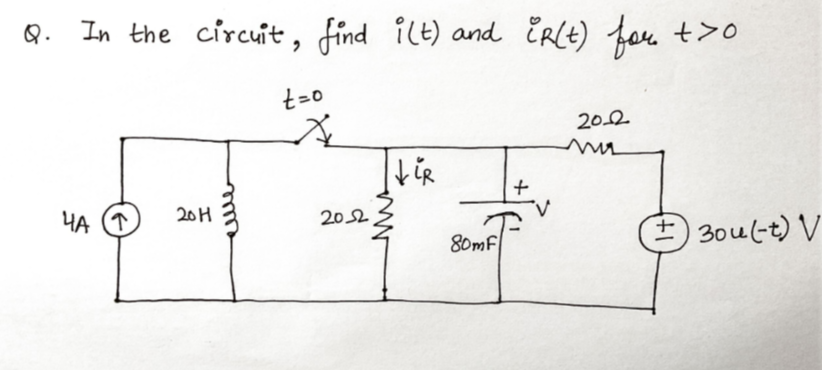 Q. In the circuit, find i(t) and iR(t) for t>0
t=0
20Ω
↓iR
4A
20H
20Ω
+
V
-
80mF
+
-
30u(-t) V